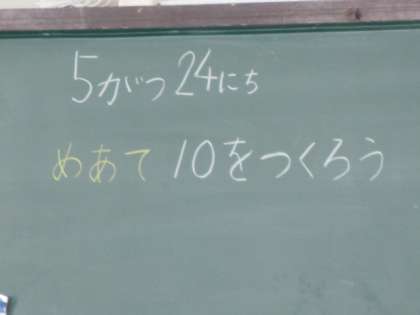 5がつ24にち
めあて 10をつくろう